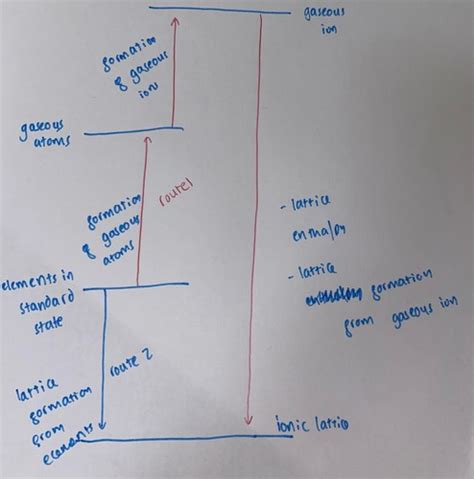 gaseous
ion
formation
of gaseous
ion
gaseous
atoms
formation
of gaseous
atoms
route1
- lattice
enthalpy
- lattice
formation
from gaseous ion
elements in
standard
state
route 2
lattice
formation
from
elements
ionic lattice